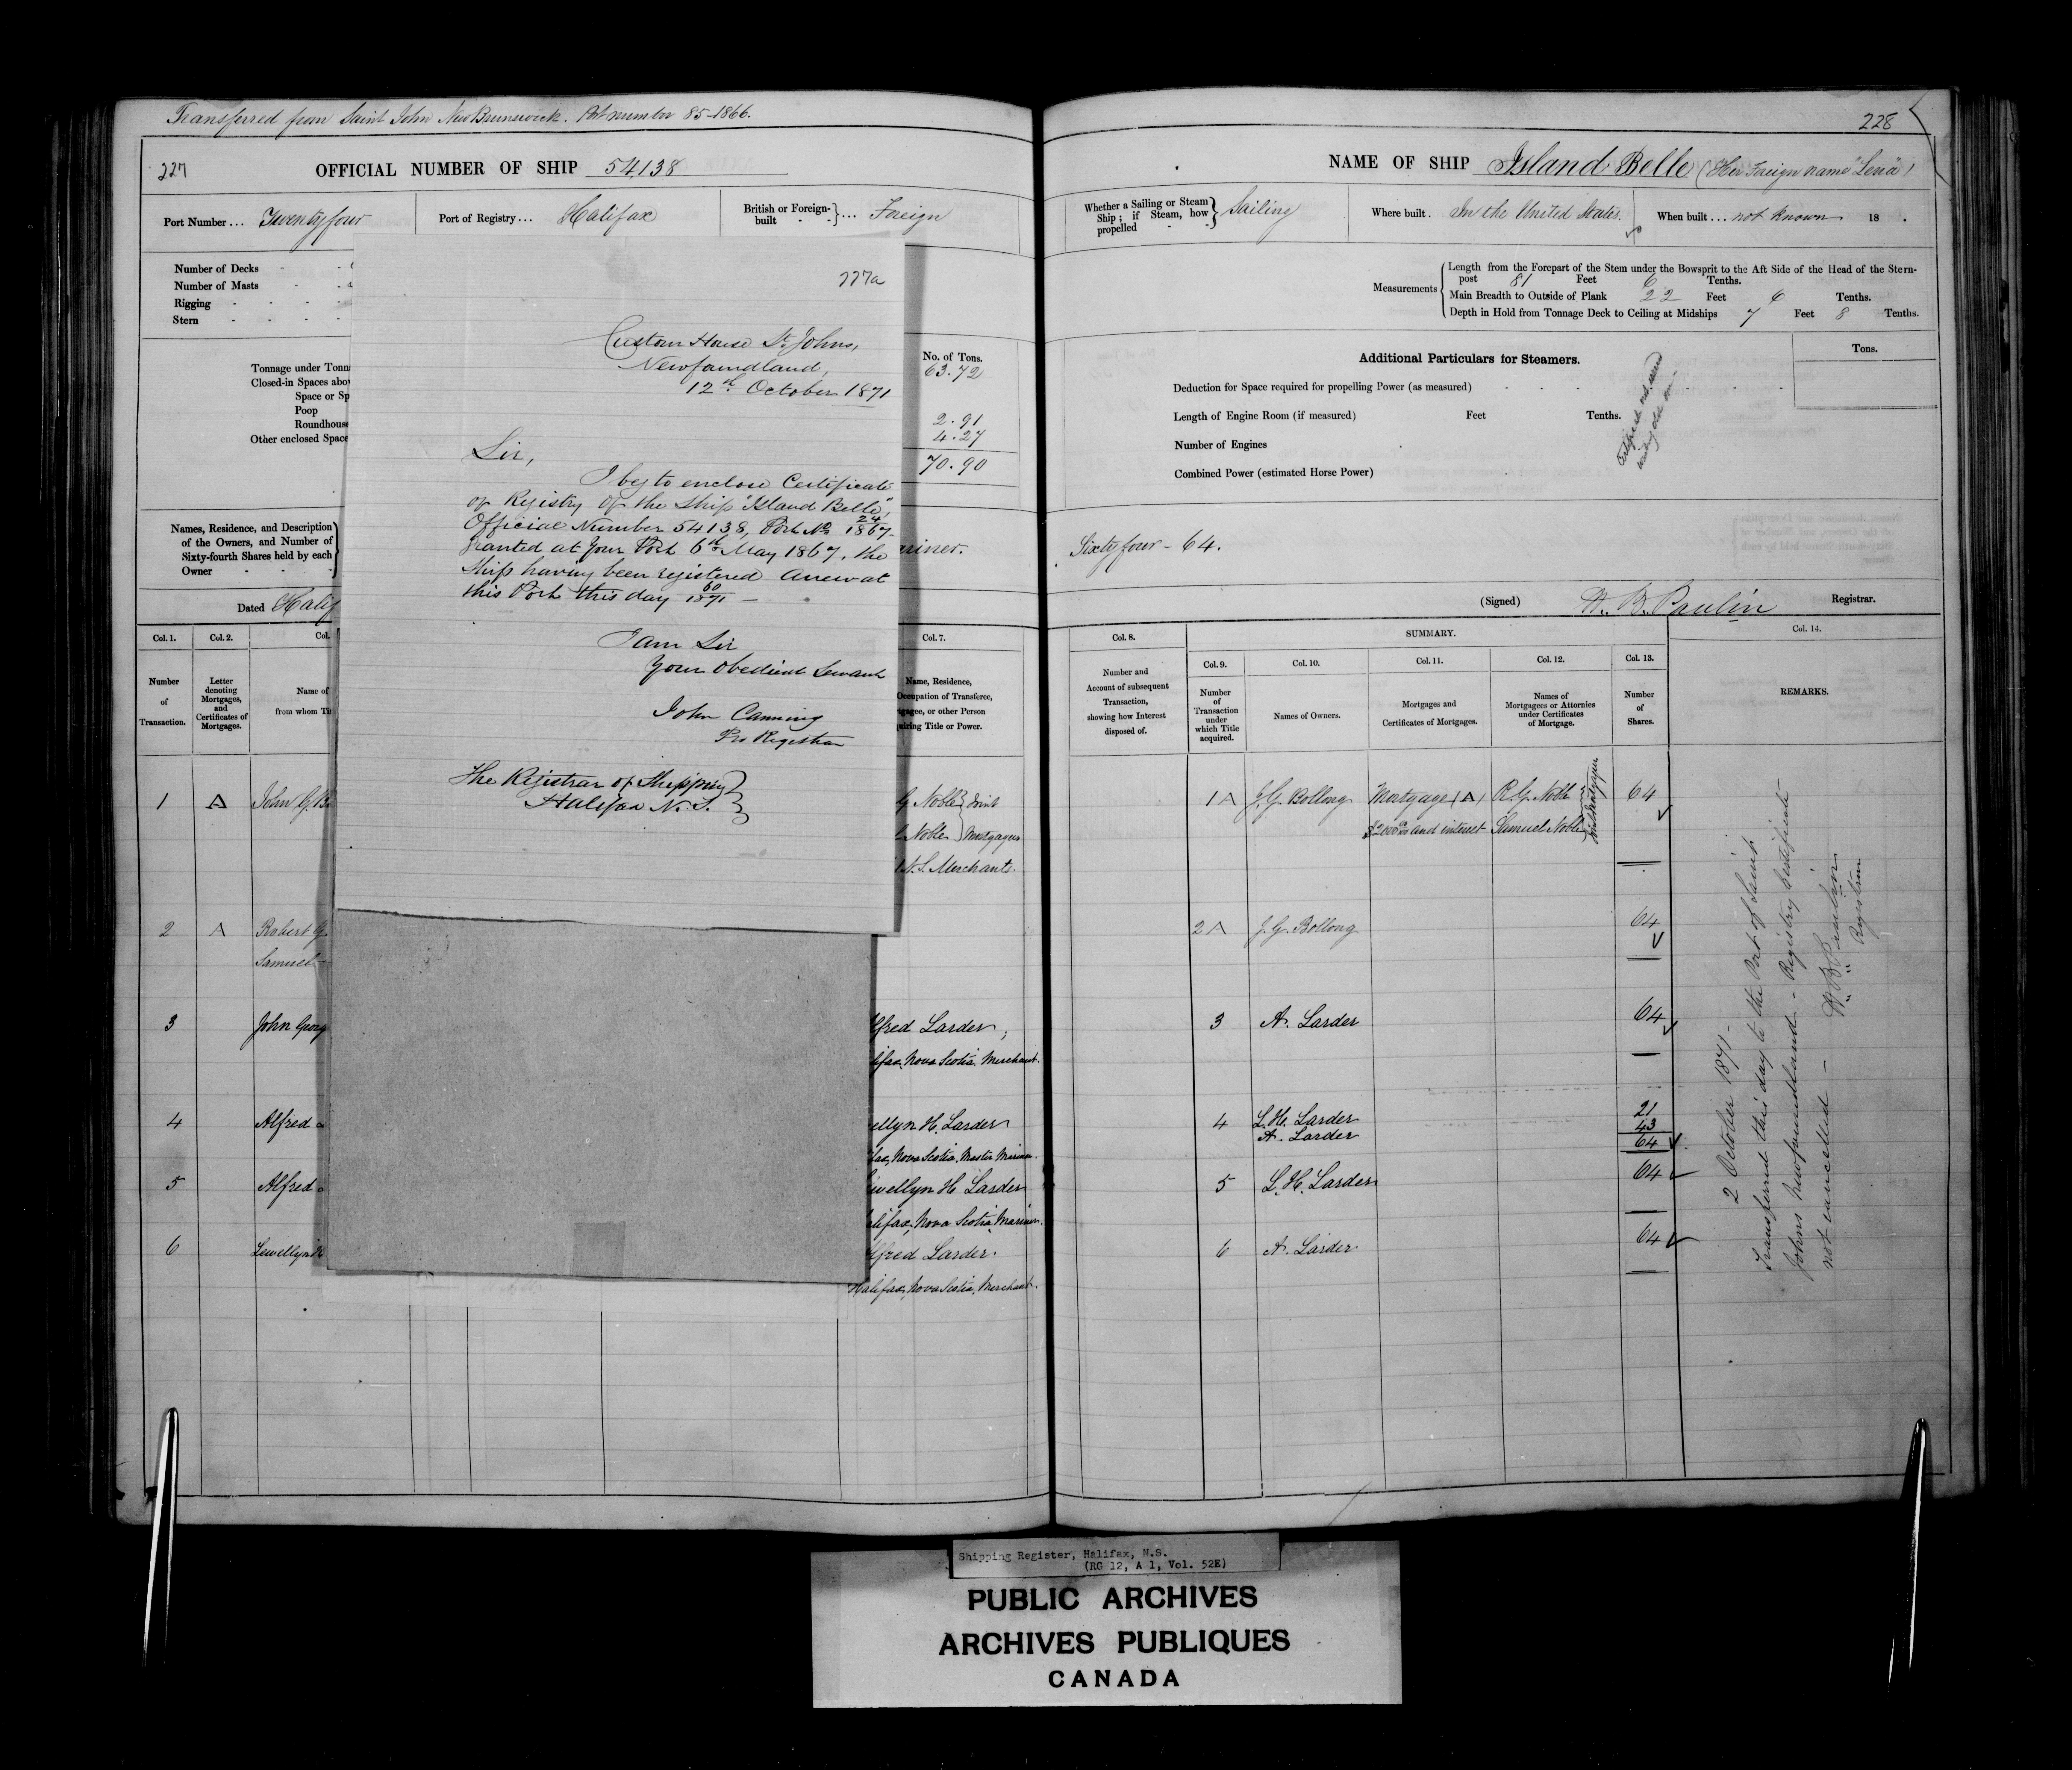 Transferred from Saint John New Brunswick. Port number 85-1866.
227
OFFICIAL NUMBER OF SHIP 54138
Port Number ... Twenty four
Port of Registry ... Halifax
British or Foreign-built } ... Foreign
Number of Decks
Number of Masts
Rigging
Stern
No. of Tons.
Tonnage under Tonn
63.72
Closed-in Spaces abo
Space or Sp
Poop
2.91
Roundhouse
4.27
Other enclosed Space
70.90
Names, Residence, and Description
of the Owners, and Number of
Sixty-fourth Shares held by each
Owner
ariner.
Dated Halif
Col. 1.
Col. 2.
Col.
Col. 7.
Number of Transaction.
Letter denoting Mortgages, and Certificates of Mortgages.
Name of
from whom Tit
Name, Residence,
Occupation of Transferee,
tgagee, or other Person
quiring Title or Power.
1 A John G. Bo
G Noble } Joint
Noble } Mortgagees
N.S. Merchants.
2 A Robert G.
Samuel
3 John Georg
lfred Larder,
lifax, Nova Scotia, Merchant.
4 Alfred
ellyn H. Larder
fax, Nova Scotia, Master Mariner.
5 Alfred
ewellyn H Larder
alifax, Nova Scotia, Mariner.
6 Lewellyn H
lfred Larder.
Halifax, Nova Scotia, Merchant.
227a
Custom House St. Johns,
Newfoundland,
12th October 1871
Sir,
I beg to enclose Certificate
of Registry of the Ship "Island Belle",
Official Number 54138, Port No 24/1867
granted at Your Port 6th May 1867, the
Ship having been registered Anew at
this Port this day 60/1871 -
I am Sir
Your Obedient Servant
John Canning
Pro Registrar
The Registrar of Shipping }
Halifax N.S. }
228
NAME OF SHIP Island Belle (Her Foreign name "Lena")
Whether a Sailing or Steam Ship; if Steam, how propelled } Sailing
Where built. In the United States.
When built ... not known 18 .
Measurements
Length from the Forepart of the Stem under the Bowsprit to the Aft Side of the Head of the Stern-
post 81 Feet 6 Tenths.
Main Breadth to Outside of Plank 22 Feet 6 Tenths.
Depth in Hold from Tonnage Deck to Ceiling at Midships 7 Feet 8 Tenths.
Additional Particulars for Steamers.
Tons.
Deduction for Space required for propelling Power (as measured)
Length of Engine Room (if measured) Feet Tenths.
Number of Engines
Combined Power (estimated Horse Power)
Sixty four - 64.
(Signed) W. B. Paulin Registrar.
Col. 8.
SUMMARY.
Col. 14.
Col. 9.
Col. 10.
Col. 11.
Col. 12.
Col. 13.
Number and Account of subsequent Transaction, showing how Interest disposed of.
Number of Transaction under which Title acquired.
Names of Owners.
Mortgages and Certificates of Mortgages.
Names of Mortgagees or Attornies under Certificates of Mortgage.
Number of Shares.
REMARKS.
1 A J. G. Bollong Mortgage (A) R. G. Noble 64
$2000 and interest Samuel Noble
2 A J. G. Bollong 64
3 A. Larder 64
4 L. H. Larder 21
A. Larder 43
64
5 L. H. Larder 64
6 A. Larder 64
2 October 1871 -
Transferred this day to the Port of Saint
Johns Newfoundland - Registry Certificate
not cancelled -
W B Paulin
Registrar
Shipping Register, Halifax, N.S.
(RG 12, A 1, Vol. 52E)
PUBLIC ARCHIVES
ARCHIVES PUBLIQUES
CANADA